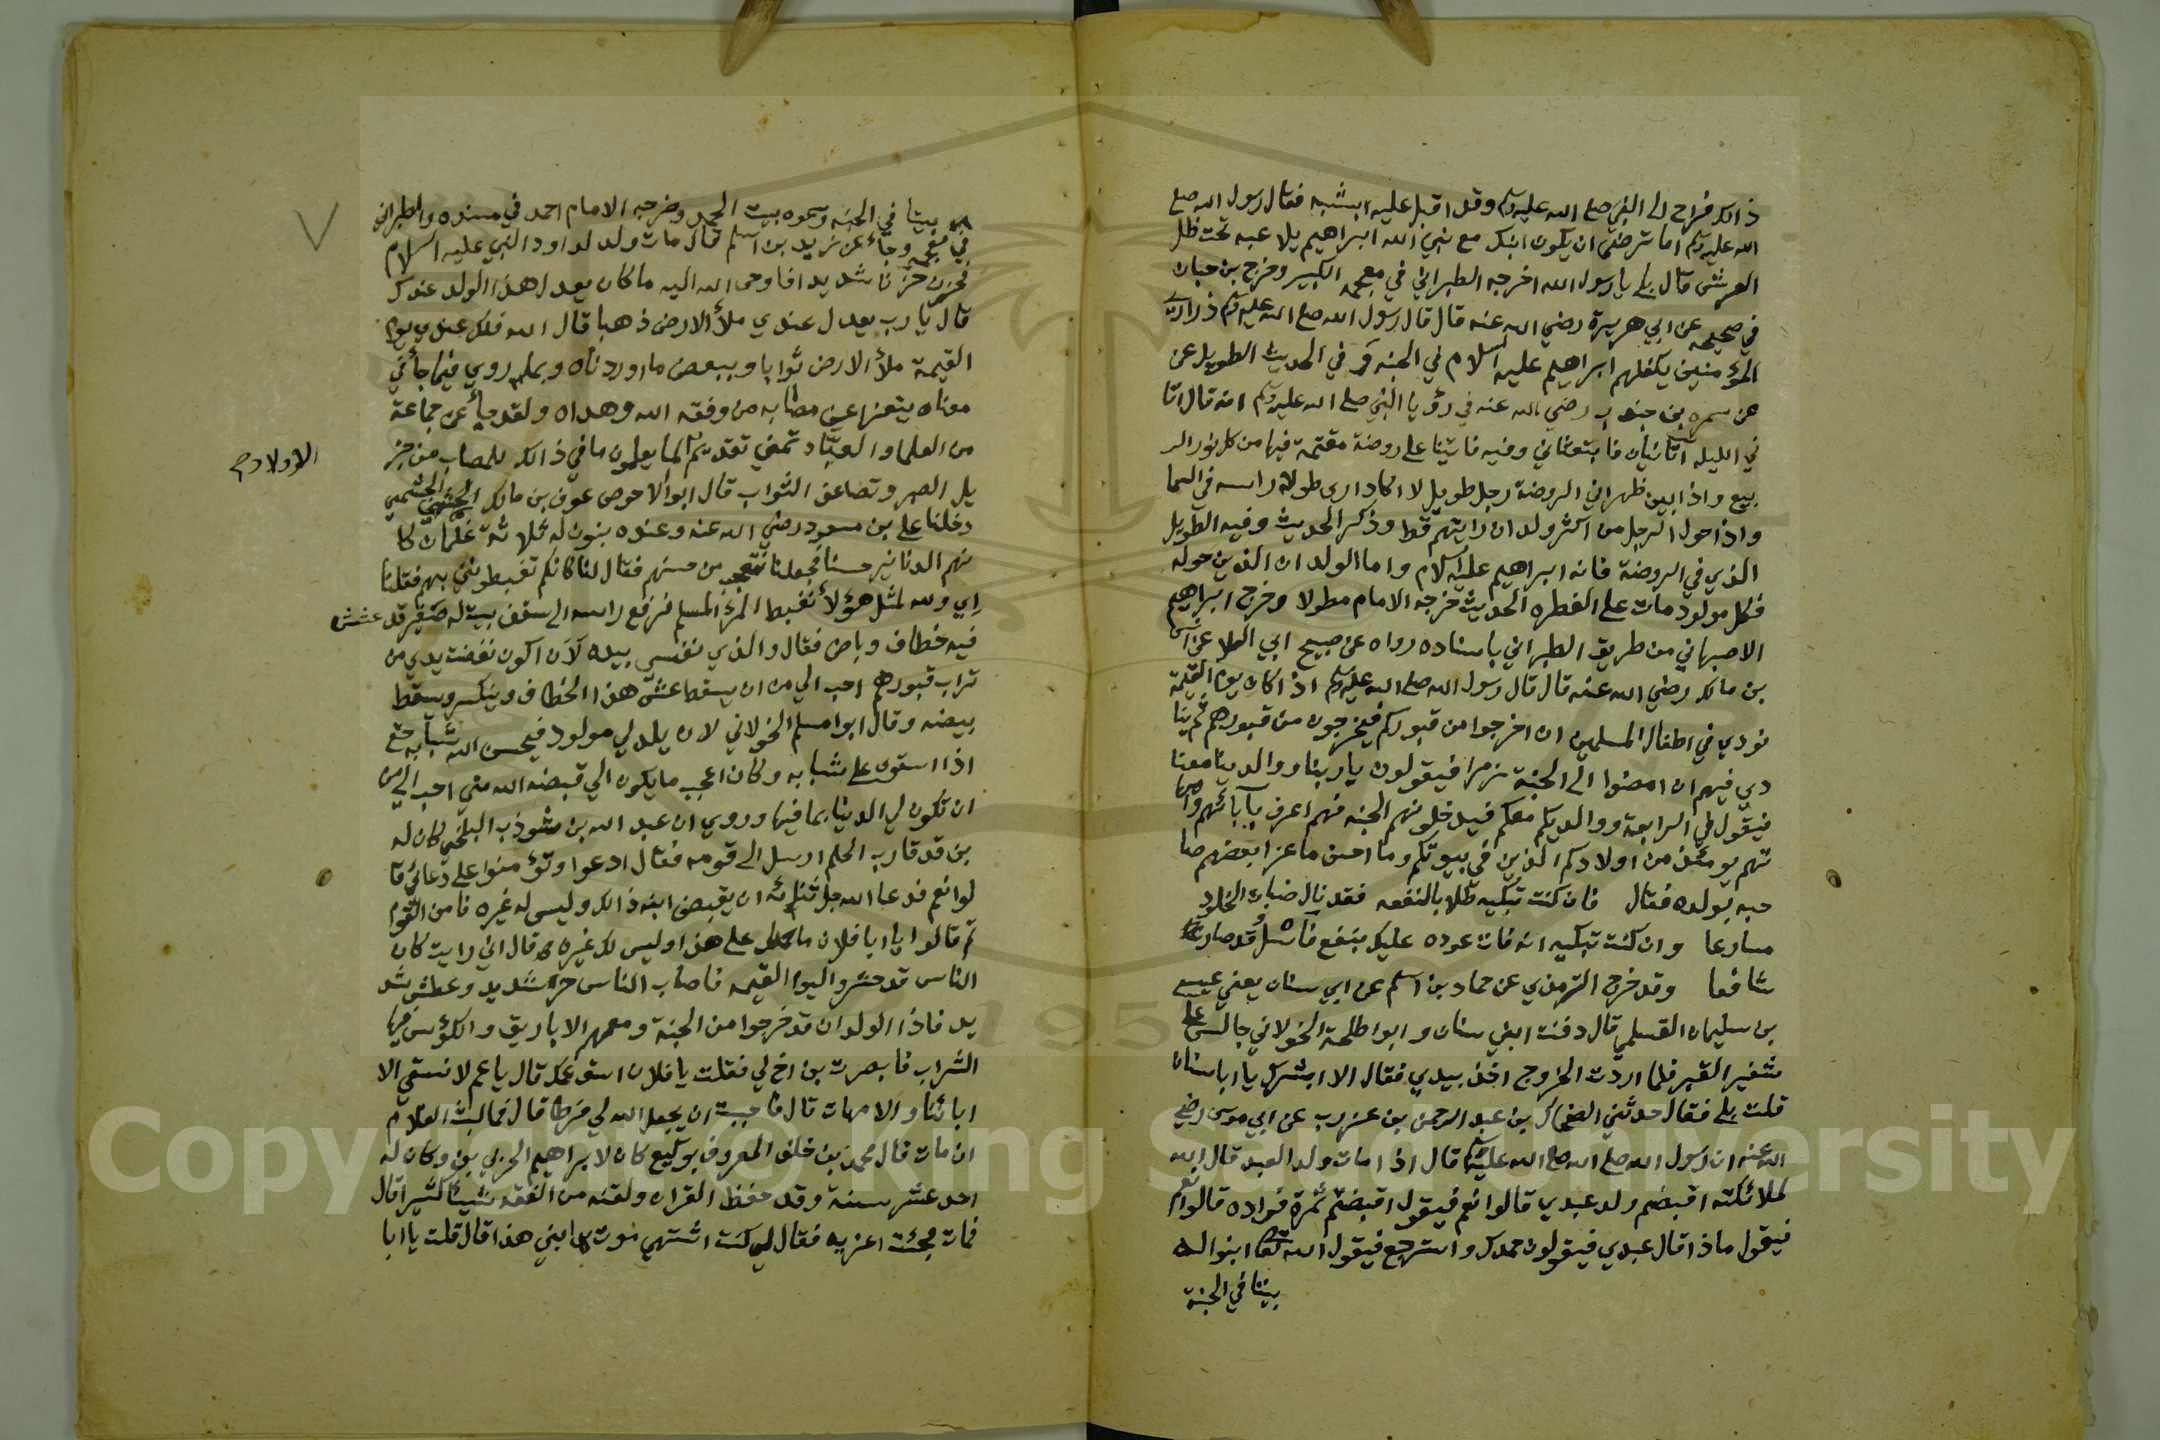 ذالك فراح الى النبي صلى الله عليه وسلم وقد اقبل عليه ابنشبه فقال رسول الله صلى
الله عليه وسلم اما ترضى ان يكون ابنك مع نبي الله ابراهيم يلاعبه تحت ظل
العرش قال بلى يا رسول الله اخرجه الطبراني في معجمه الكبير وخرج بن حبان
في صحيحه عن ابي هريرة رضي الله عنه قال قال رسول الله صلى الله عليه وسلم ذراري
المؤمنين يكفلهم ابراهيم عليه السلام في الجنه و في الحديث الطويل عن
عن سمره بن جندب رضي الله عنه في رؤيا النبي صلى الله عليه وسلم انه قال اتا
ني الليله آتائيان فابتعثاني وفيه فاتينا على روضة مقتمة فيها من كل نور الر
بيع واذا بين ظهراني الروضة رجل طويل لا اكاد ارى طولا راسه في السما
واذا حول الرجل من اكثر ولدان رايتهم قط وذكر الحديث وفيه الطويل
الذي في الروضة فانه ابراهيم عليه السلام واما الولدان الذين حوله
فكل مولود مات على الفطره الحديث خرجه الامام مطولا وخرج ابراهيم
الاصبهاني من طريق الطبراني باسناده رواه عن صبيح ابي العلا عن انس
بن مالك رضي الله عنه قال قال رسول الله صلى الله عليه وسلم اذا كان يوم القيمة
نودي في اطفال المسلمين ان اخرجوا من قبوركم فيخرجون من قبورهم ثم ينا
دي فيهم ان امضوا الى الجنة زمرا فيقولون يا ربنا ووالدينا معنا
فيقول في الرابعة ووالديكم معكم فيدخلونهم الجنه فهم اعرف بآبائهم وامها
تهم يومئذ من اولادكم الذين في بيوتكم وما احسن ما عزا بعضهم صا
حبه بولده فقال فان كنت تبكيه طلابا لنفعه فقد نال ضبات الخلود
مسارعا وان كنت تبكيه انه فات عوده عليك بنفع فاسْلُ قد صار
شافعا وقد خرج الترمذي عن حماد بن اسلم عن ابي سنان يعني عيسى
بن سليمان القسملي قال دفنت ابني سنان و ابوا طلحة الخولاني جالس على
شفير القبر فلما اردت الخروج اخذ بيدي فقال الا ابشرك يا ابا سنان
قلت بلى فقال حدثني الضحاك بن عبد الرحمن بن عزرب عن ابي موسى رضي
الله عنه ان رسول الله صلى الله عليه وسلم قال اذا مات ولد العبد قال الله
لملائكته اقبضتم ولد عبدي قالوا نعم فيقول اقبضتم ثمرة فؤاده قالوا نعم
فيقول ماذا قال عبدي فيقولون حمدك واسترجع فيقول الله تعا ابنوا له
بيتا في الجنة
له بيتا في الجنه وسموه بيت الحمد وخرجه الامام احمد في مسنده والطبراني
في معجمه وجاء عن زيد بن اسلم قال مات ولد لداود النبي عليه السلام
فحزن حزنا شديدا فاوحى الله اليه ما كان يعدل هذا الولد عندك
قال يا رب يعدل عندي ملأ الارض ذهبا قال الله فلك عندي يوم
القيمة ملأ الارض ثوابا وببعض ما اوردناه وبما روي فيما جا في
معناه يتعزا عن مصابه من وفقه الله وهداه ولقد جاء عن جماعة
من العلما والعبّاد تمني تقديم لما يعلمون ما في ذالك للمصاب من جز
الاولاد صح
يل الصبر وتضاعف الثواب قال ابوالاحوص عوف بن مالك الجشمي
دخلنا على بن مسعود رضي الله عنه وعنده بنون له ثلاثة غلمان كا
نهم الدنانير حسنا فجعلنا نتعجب من حسنهم فقال لنا كانكم تغبطونني بهم فقلنا
اي والله لمثل هؤلاء نغبط المرء المسلم فرفع راسه الى سقف بيت له صغير قد عشش
فيه خطاف وباض فقال والذي نفسي بيده لان اكون نفضت يدي من
تراب قبورهم احب الي من ان يسقط عش هذا الخطاف وينكسر ويسقط
بيضه وقال ابوا مسلم الخولاني لان يلد لي مولود فيحسن الله شبابه حتى
اذا استوى على شبابه وكان اعجب ما يكون الي قبضه الله مني احب الي من
ان تكون لي الدنيا بما فيها وروي ان عبد الله بن شوذب البلخي كان له
بن قد قارب الحلم ارسل الى قومه فقال ادعوا وتؤمنوا على دعائي قا
لوا نعم فدعا الله جل ثنائه ان يقبض ابنه ذالك وليس له غيره فامن القوم
ثم قالوا يا ابا فلان ما حملك على هذا وليس لك غيره قال اني رايت كان
الناس قد حشروا اليوم القيمه فاصاب الناس حر شديد وعطش شد
يد فاذا الولدان قد خرجوا من الجنة ومعهم الاباريق والكؤس فيها
الشراب فابصرت بن اخ لي فقلت يا فلان اسق عمك قال يا عم لا نسقي الا
ابائنا والامهات قال فاحببت ان يجعل الله لي فرطا قال فما لبث الغلام
ان مات قال محمد بن خلف المعروف بوكيع كان لابراهيم الحربي بن وكان له
احد عشر سنة وقد حفظ القران ولقنه من الفقه شيئا كثيرا قال
فمات فجئت اعزيه فقال لي كنت اشتهي موت ابني هذا قال قلت يا ابا
Copyright © King Saud University
1957